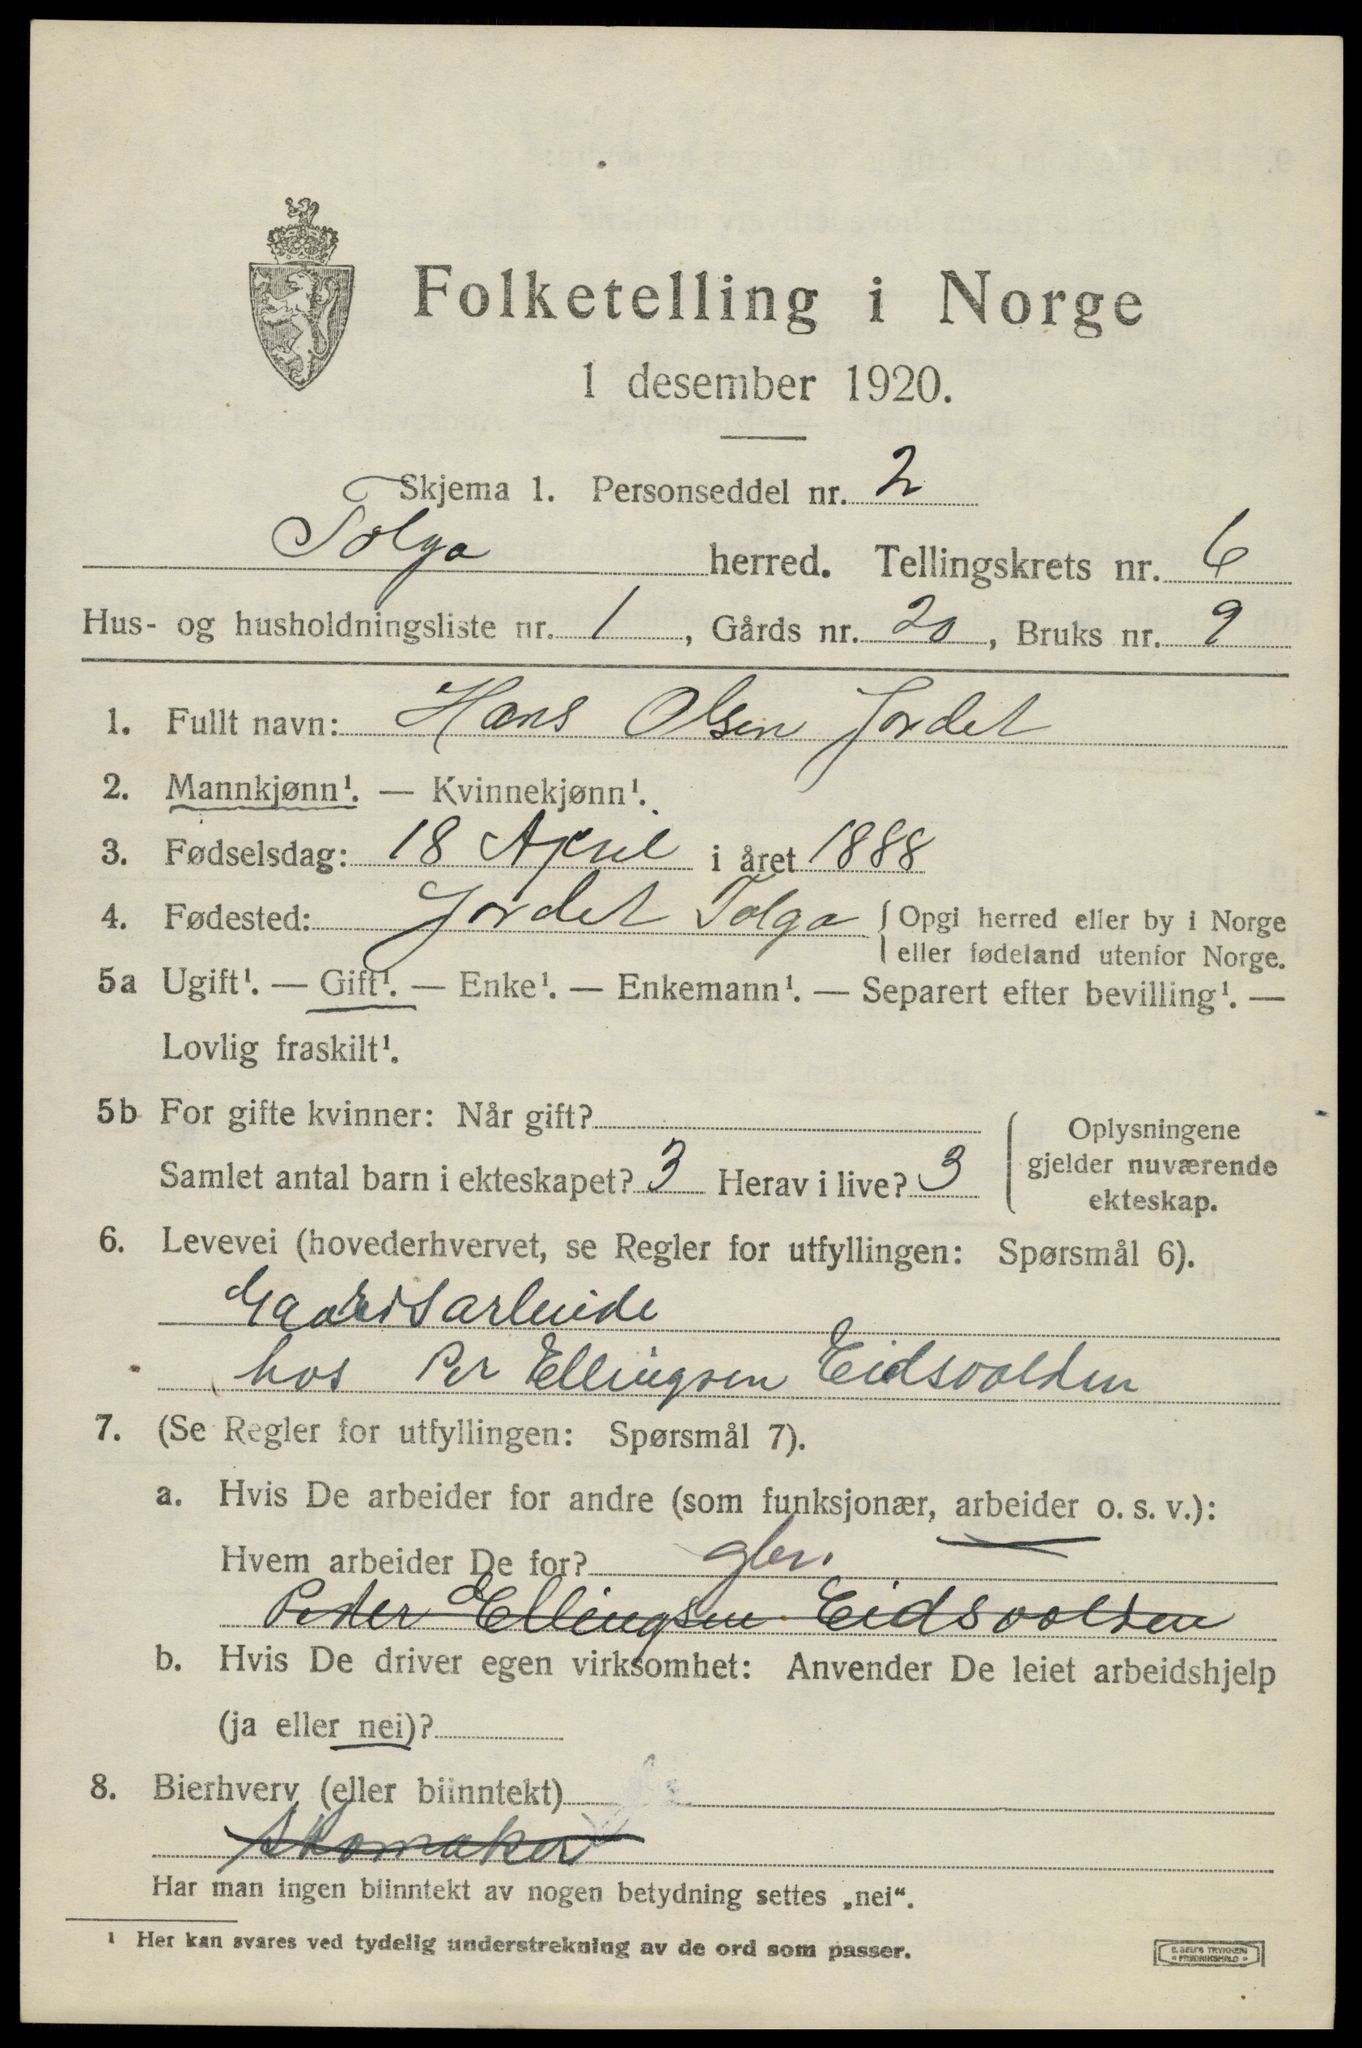 Folketelling i Norge
1 desember 1920.
Skjema 1. Personseddel nr. 2
Tolga herred. Tellingskrets nr. 6
Hus- og husholdningsliste nr. 1, Gårds nr. 20, Bruks nr. 9
1. Fullt navn: Hans Olsen Jordet
2. Mannkjønn¹. — Kvinnekjønn¹.
3. Fødselsdag: 18 April i året 1888
4. Fødested: Jordet Tolga { Opgi herred eller by i Norge
eller fødeland utenfor Norge.
5a Ugift¹. — Gift¹. — Enke¹. — Enkemann¹. — Separert efter bevilling¹. —
Lovlig fraskilt¹.
5b For gifte kvinner: Når gift?
Samlet antal barn i ekteskapet? 3 Herav i live? 3
Oplysningene
gjelder nuværende
ekteskap.
6. Levevei (hovederhvervet, se Regler for utfyllingen: Spørsmål 6).
Gaardsarbeide
hos Per Ellingsen Eidsvolden
7. (Se Regler for utfyllingen: Spørsmål 7).
a. Hvis De arbeider for andre (som funksjonær, arbeider o. s. v.):
Hvem arbeider De for? gbr.
Peder Ellingsen Eidsvolden
b. Hvis De driver egen virksomhet: Anvender De leiet arbeidshjelp
(ja eller nei)?
8. Bierhverv (eller biinntekt)
Skomaker
Har man ingen biinntekt av nogen betydning settes „nei“.
¹ Her kan svares ved tydelig understrekning av de ord som passer.